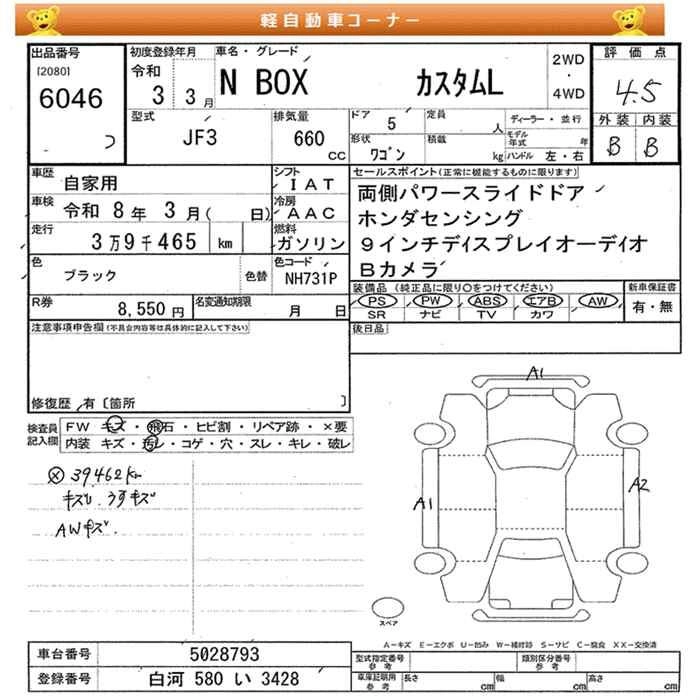 軽自動車コーナー
出品番号
[2080]
6046
初度登録年月
令和
3 3月
車名・グレード
N BOX カスタムL
2WD
・
4WD
評価点
4.5
外装 内装
B B
型式
JF3
排気量
660
cc
ドア
5
形状
ワゴン
定員
人
積載
kg
ディーラー・並行
モデル年式 年
ハンドル 左・右
車歴
自家用
シフト
IAT
車検
令和 8年 3月( 日)
冷房
AAC
走行
3万9千465 km
燃料
ガソリン
色
ブラック
色替
色コード
NH731P
R券
8,550円
名変通知期限
月 日
セールスポイント(正常に機能するものに限ります)
両側パワースライドドア
ホンダセンシング
9インチディスプレイオーディオ
Bカメラ
装備品(純正品に限り○をつけてください)
PS PW ABS エアB AW
SR ナビ TV カワ
新車保証書
有・無
後日品
注意事項申告欄(不具合内容等は具体的に記入して下さい)
修復歴 有〔箇所 〕
検査員記入欄
FW キズ・飛石・ヒビ割・リペア跡・×要
内装 キズ・汚レ・コゲ・穴・スレ・キレ・破レ
39462km
キズ、うすキズ
AWキズ.
A1
A1
A2
スペア
A－キズ E－エクボ U－凹み W－補修跡 S－サビ C－腐食 XX－交換済
車台番号
5028793
登録番号
白河 580 い 3428
型式指定番号
参考
類別区分番号
参考
車庫証明用
参考
長さ cm
幅 cm
高さ cm